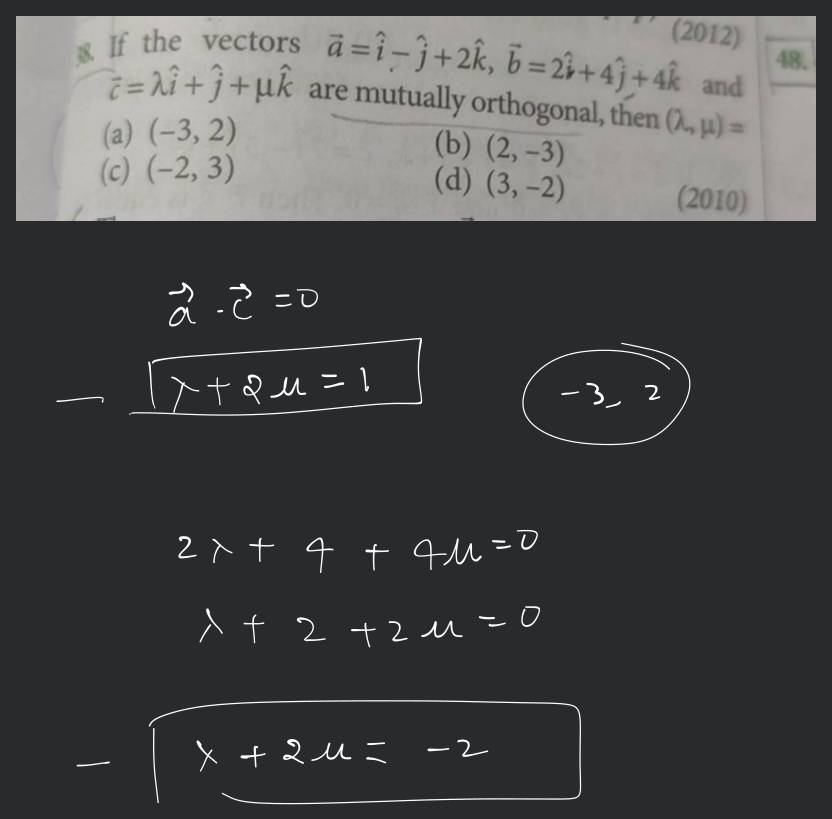 (2012)
38. If the vectors a⃗ = î − ĵ + 2k̂, b⃗ = 2î + 4ĵ + 4k̂ and
48.
c⃗ = λî + ĵ + μk̂ are mutually orthogonal, then (λ, μ) =
(a) (−3, 2) (b) (2, −3)
(c) (−2, 3) (d) (3, −2)
(2010)
a⃗ . c⃗ = 0
— λ + 2μ = 1
−3, 2
2λ + 4 + 4μ = 0
λ + 2 + 2μ = 0
— λ + 2μ = −2